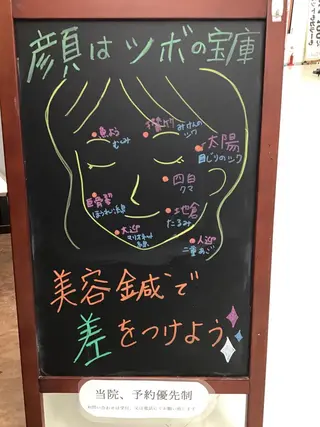 顔はツボの宝庫
魚よう
むくみ
みけんの
シワ
太陽
目じりのシワ
四白
クマ
ほうれい線
地倉
たるみ
大迎
マリオネット
線
人迎
二重あご
美容鍼で
差をつけよう
当院、予約優先制